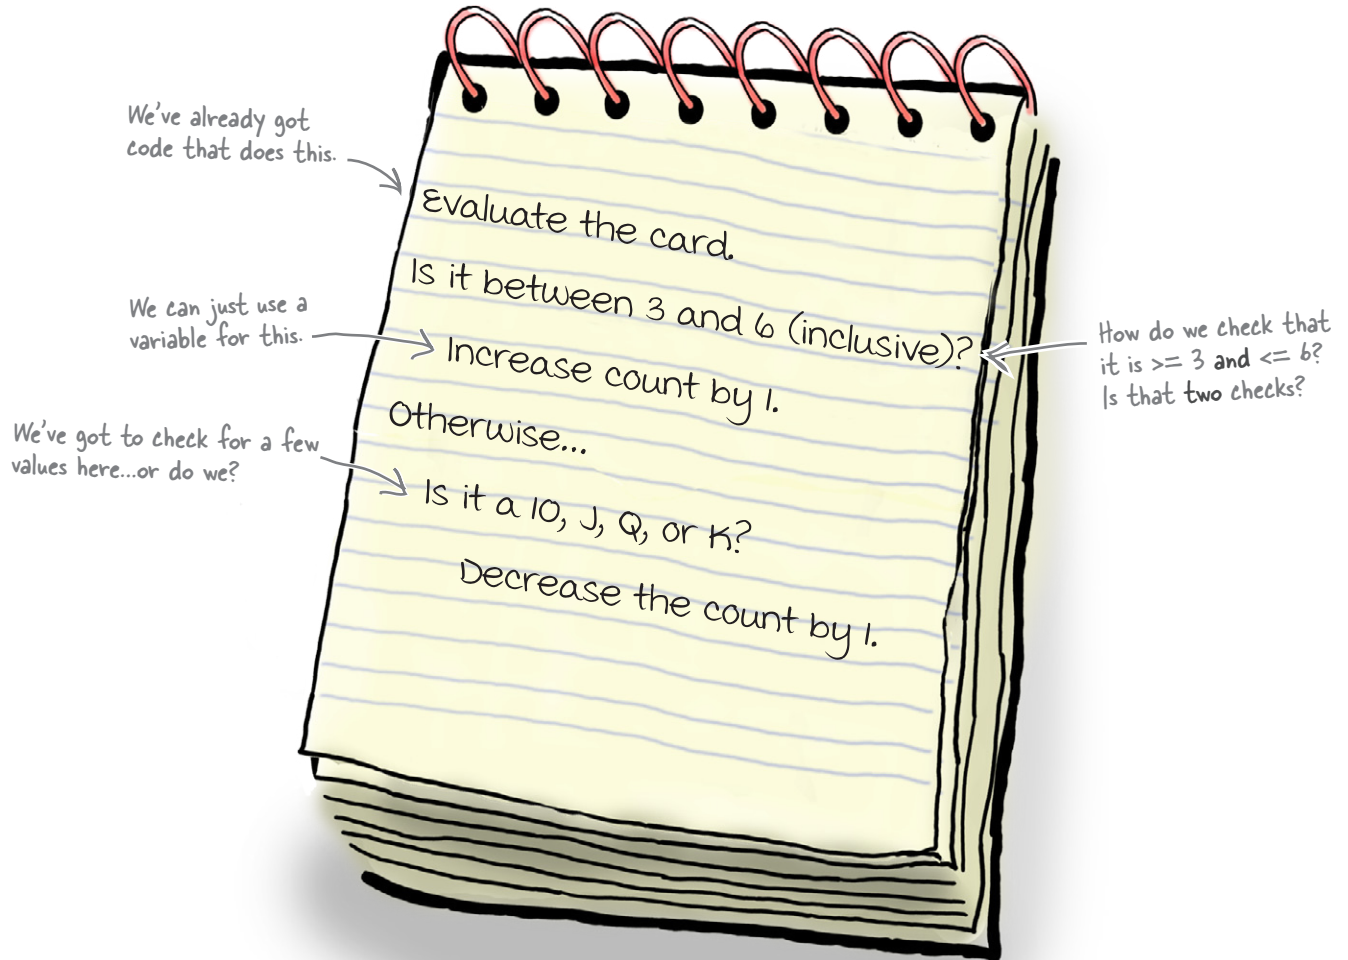 We've already got
code that does this.
Evaluate the card.
Is it between 3 and 6 (inclusive)?
We can just use a
variable for this.
Increase count by 1.
How do we check that
it is >= 3 and <= 6?
Is that two checks?
Otherwise...
We've got to check for a few
values here...or do we?
Is it a 10, J, Q, or K?
Decrease the count by 1.